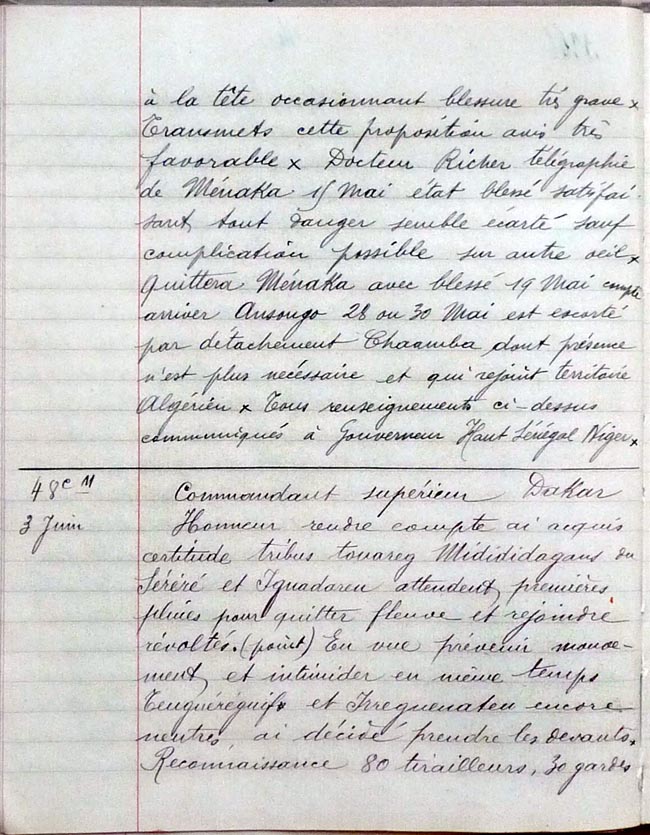 à la tête occasionnant blessure très grave x
Transmets cette proposition avis très
favorable x Docteur Richer télégraphie
de Ménaka 15 Mai état blessé satisfai-
sant tout danger semble écarté sauf
complication possible sur autre oeil x
quittera Ménaka avec blessé 19 Mai compte
arriver Ansongo 28 ou 30 Mai est escorté
par détachement Chaamba dont présence
n'est plus nécessaire et qui rejoint territoire
Algérien x Tous renseignements ci-dessus
communiqués à Gouverneur Haut Sénégal Niger x
48 c M
3 Juin
Commandant supérieur Dakar
Honneur rendre compte ai acquis
certitude tribus touareg Midididagans du
Séréré et Iguadaren attendent premières
pluies pour quitter fleuve et rejoindre
révoltés. (point) En vue prévenir mouve-
ment et intimider en même temps
Tenguéréguif et Irreguenaten encore
neutres, ai décidé prendre les devants x
Reconnaissance 80 tirailleurs, 30 gardes